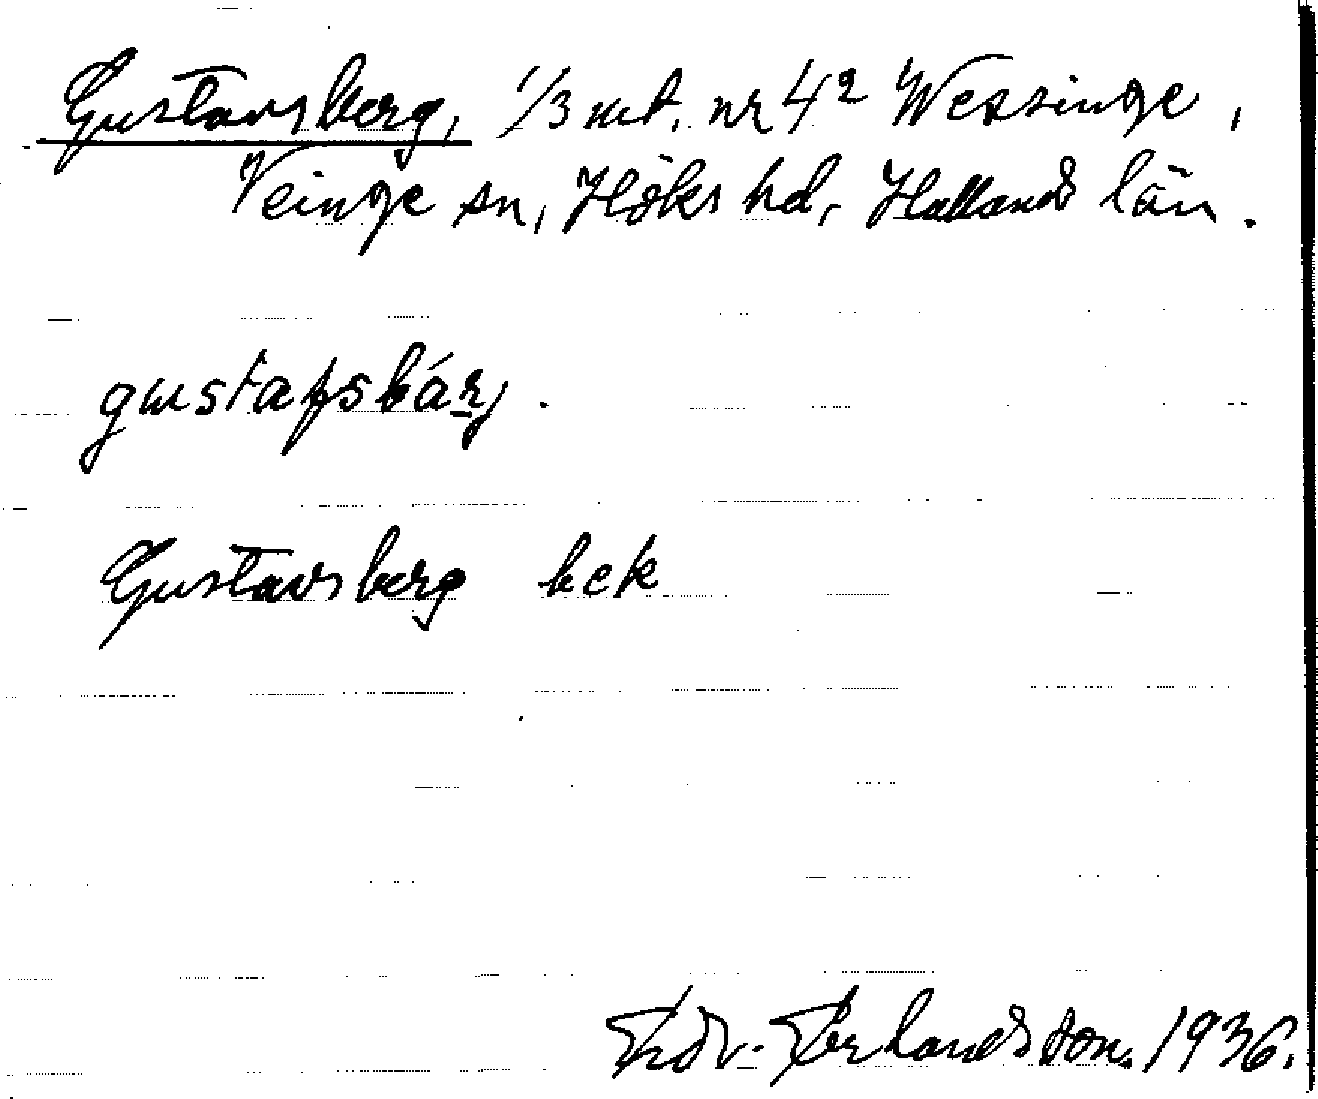 Gustavsberg, 1/3 mt. nr 4² Wessinge,
Veinge sn, Höks hd, Hallands län.
gustafsbárj.
Gustavsberg bek
Edv. Erlandsson. 1936.